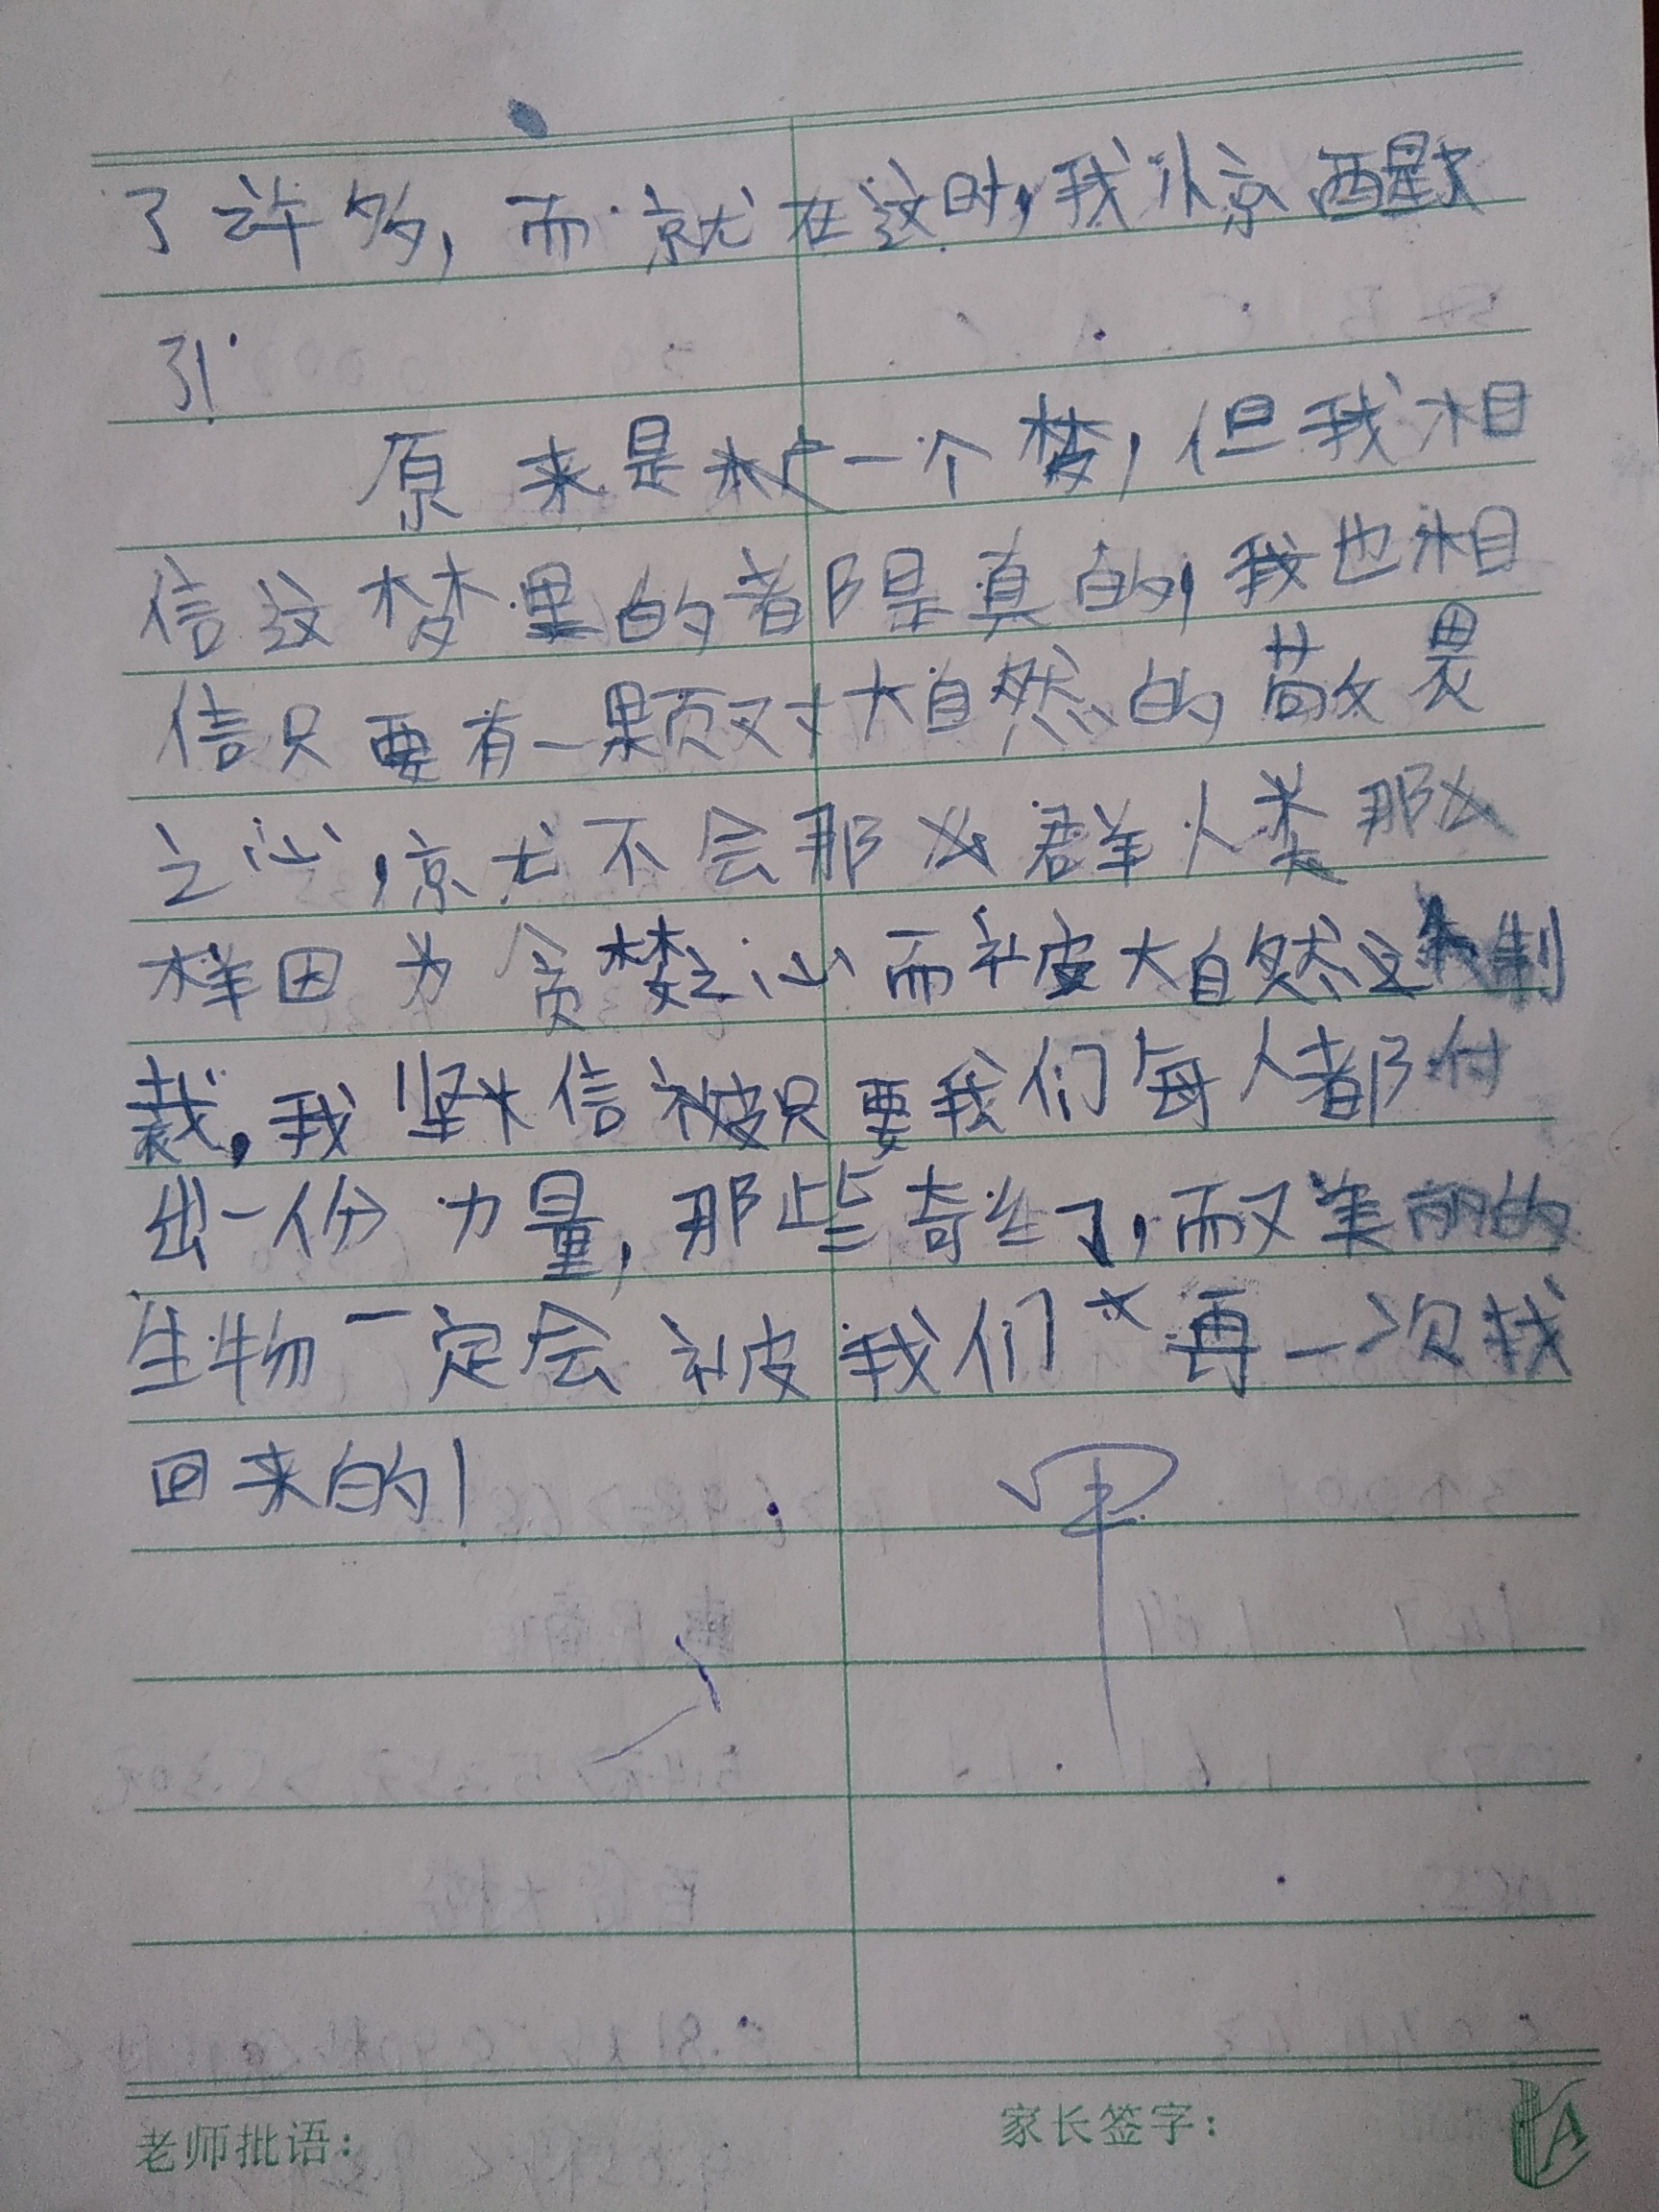 了许多，而就在这时，我惊醒
了！
原来是一个梦，但我相
信这梦里的都是真的，我也相
信只要有一颗对大自然的敬畏
之心，就不会那么群人类那么
样因为贪婪之心而被大自然制
裁，我坚信只要我们每人都付
出一份力量，那些奇幻，而又美丽的
生物一定会被我们再一次找
回来的！
甲
老师批语：
家长签字：